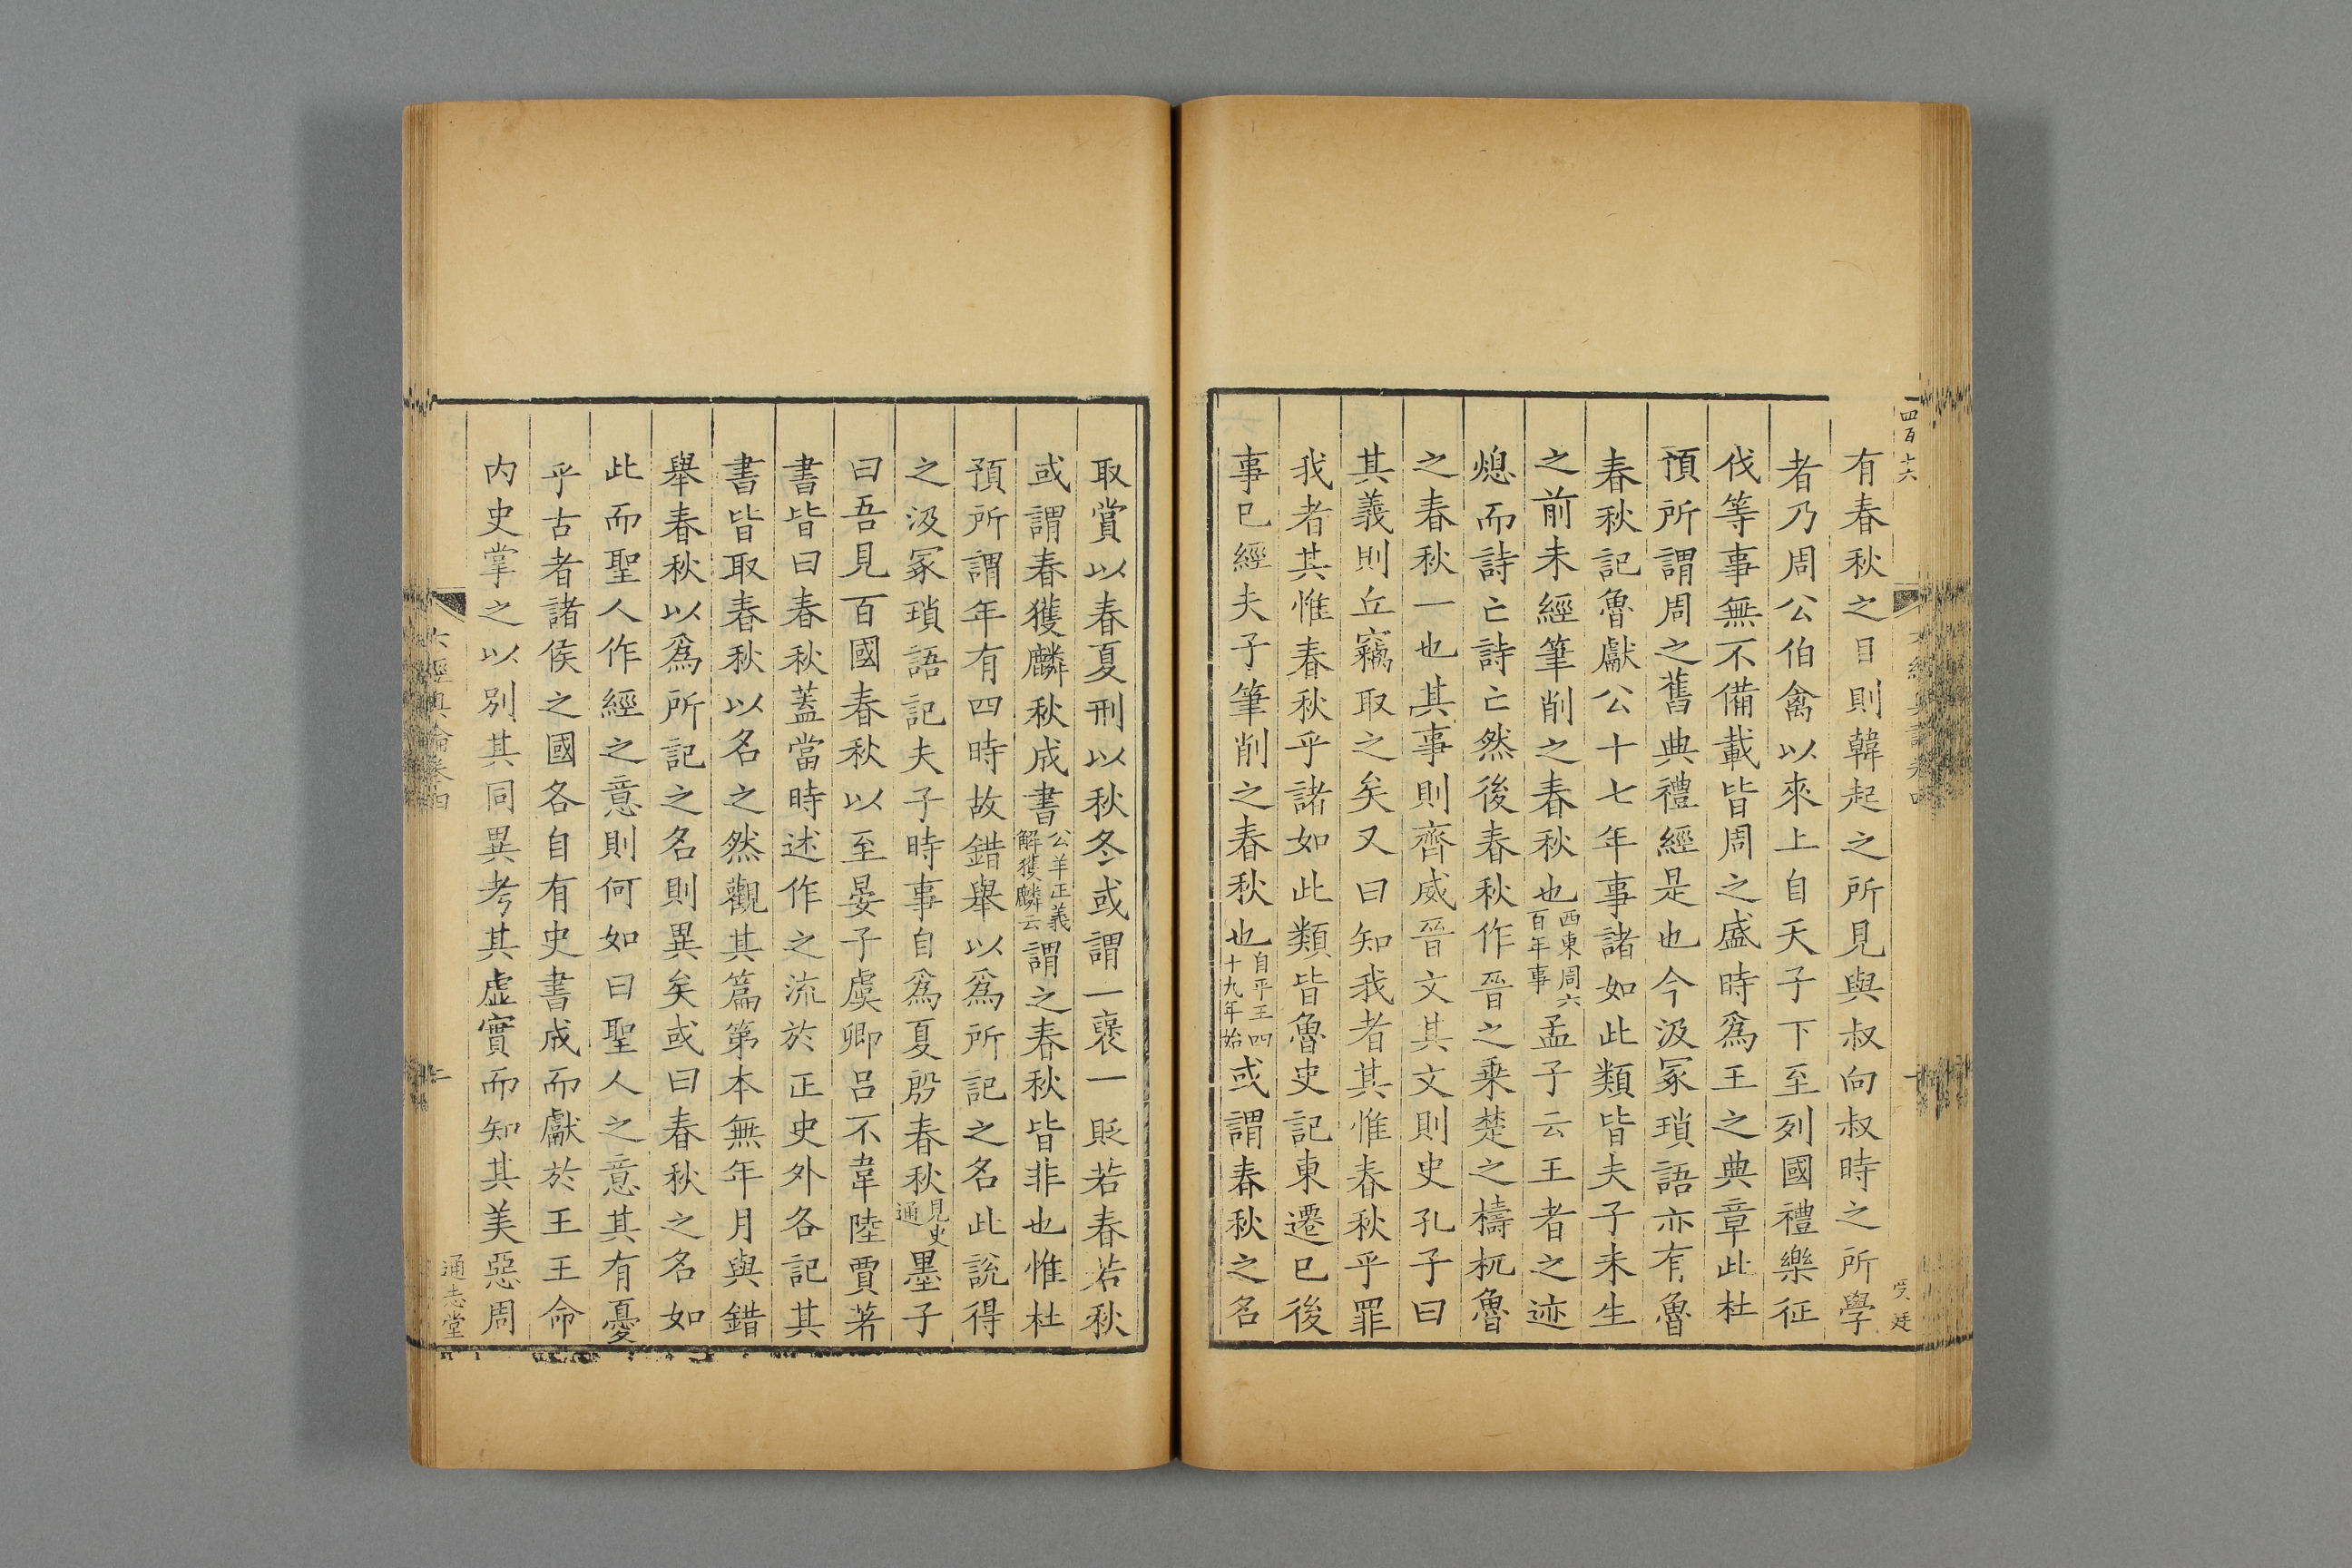 四百十六
有春秋之目則韓起之所見與叔向叔時之所學
者乃周公伯禽以來上自天子下至列國禮樂征
伐等事無不備載皆周之盛時爲王之典章此杜
預所謂周之舊典禮經是也今汲冢瑣語亦有魯
春秋記魯獻公十七年事諸如此類皆夫子未生
之前未經筆削之春秋也西東周六百年事孟子云王者之迹
熄而詩亡詩亡然後春秋作晉之乗楚之檮杌魯
之春秋一也其事則齊威晉文其文則史孔子曰
其義則丘竊取之矣又曰知我者其惟春秋乎罪
我者其惟春秋乎諸如此類皆魯史記東遷已後
事已經夫子筆削之春秋也自平王四十九年始或謂春秋之名
取賞以春夏刑以秋冬或謂一褒一貶若春若秋
或謂春獲麟秋成書公羊正義解獲麟云謂之春秋皆非也惟杜
預所謂年有四時故錯舉以爲所記之名此說得
之汲冢瑣語記夫子時事自爲夏殷春秋見史通墨子
曰吾見百國春秋以至晏子虞卿呂不韋陸賈著
書皆曰春秋蓋當時述作之流於正史外各記其
書皆取春秋以名之然觀其篇第本無年月與錯
舉春秋以爲所記之名則異矣或曰春秋之名如
此而聖人作經之意則何如曰聖人之意其有憂
乎古者諸侯之國各自有史書成而獻於王王命
内史掌之以別其同異考其虛實而知其美惡周
六經奥論卷四
通志堂